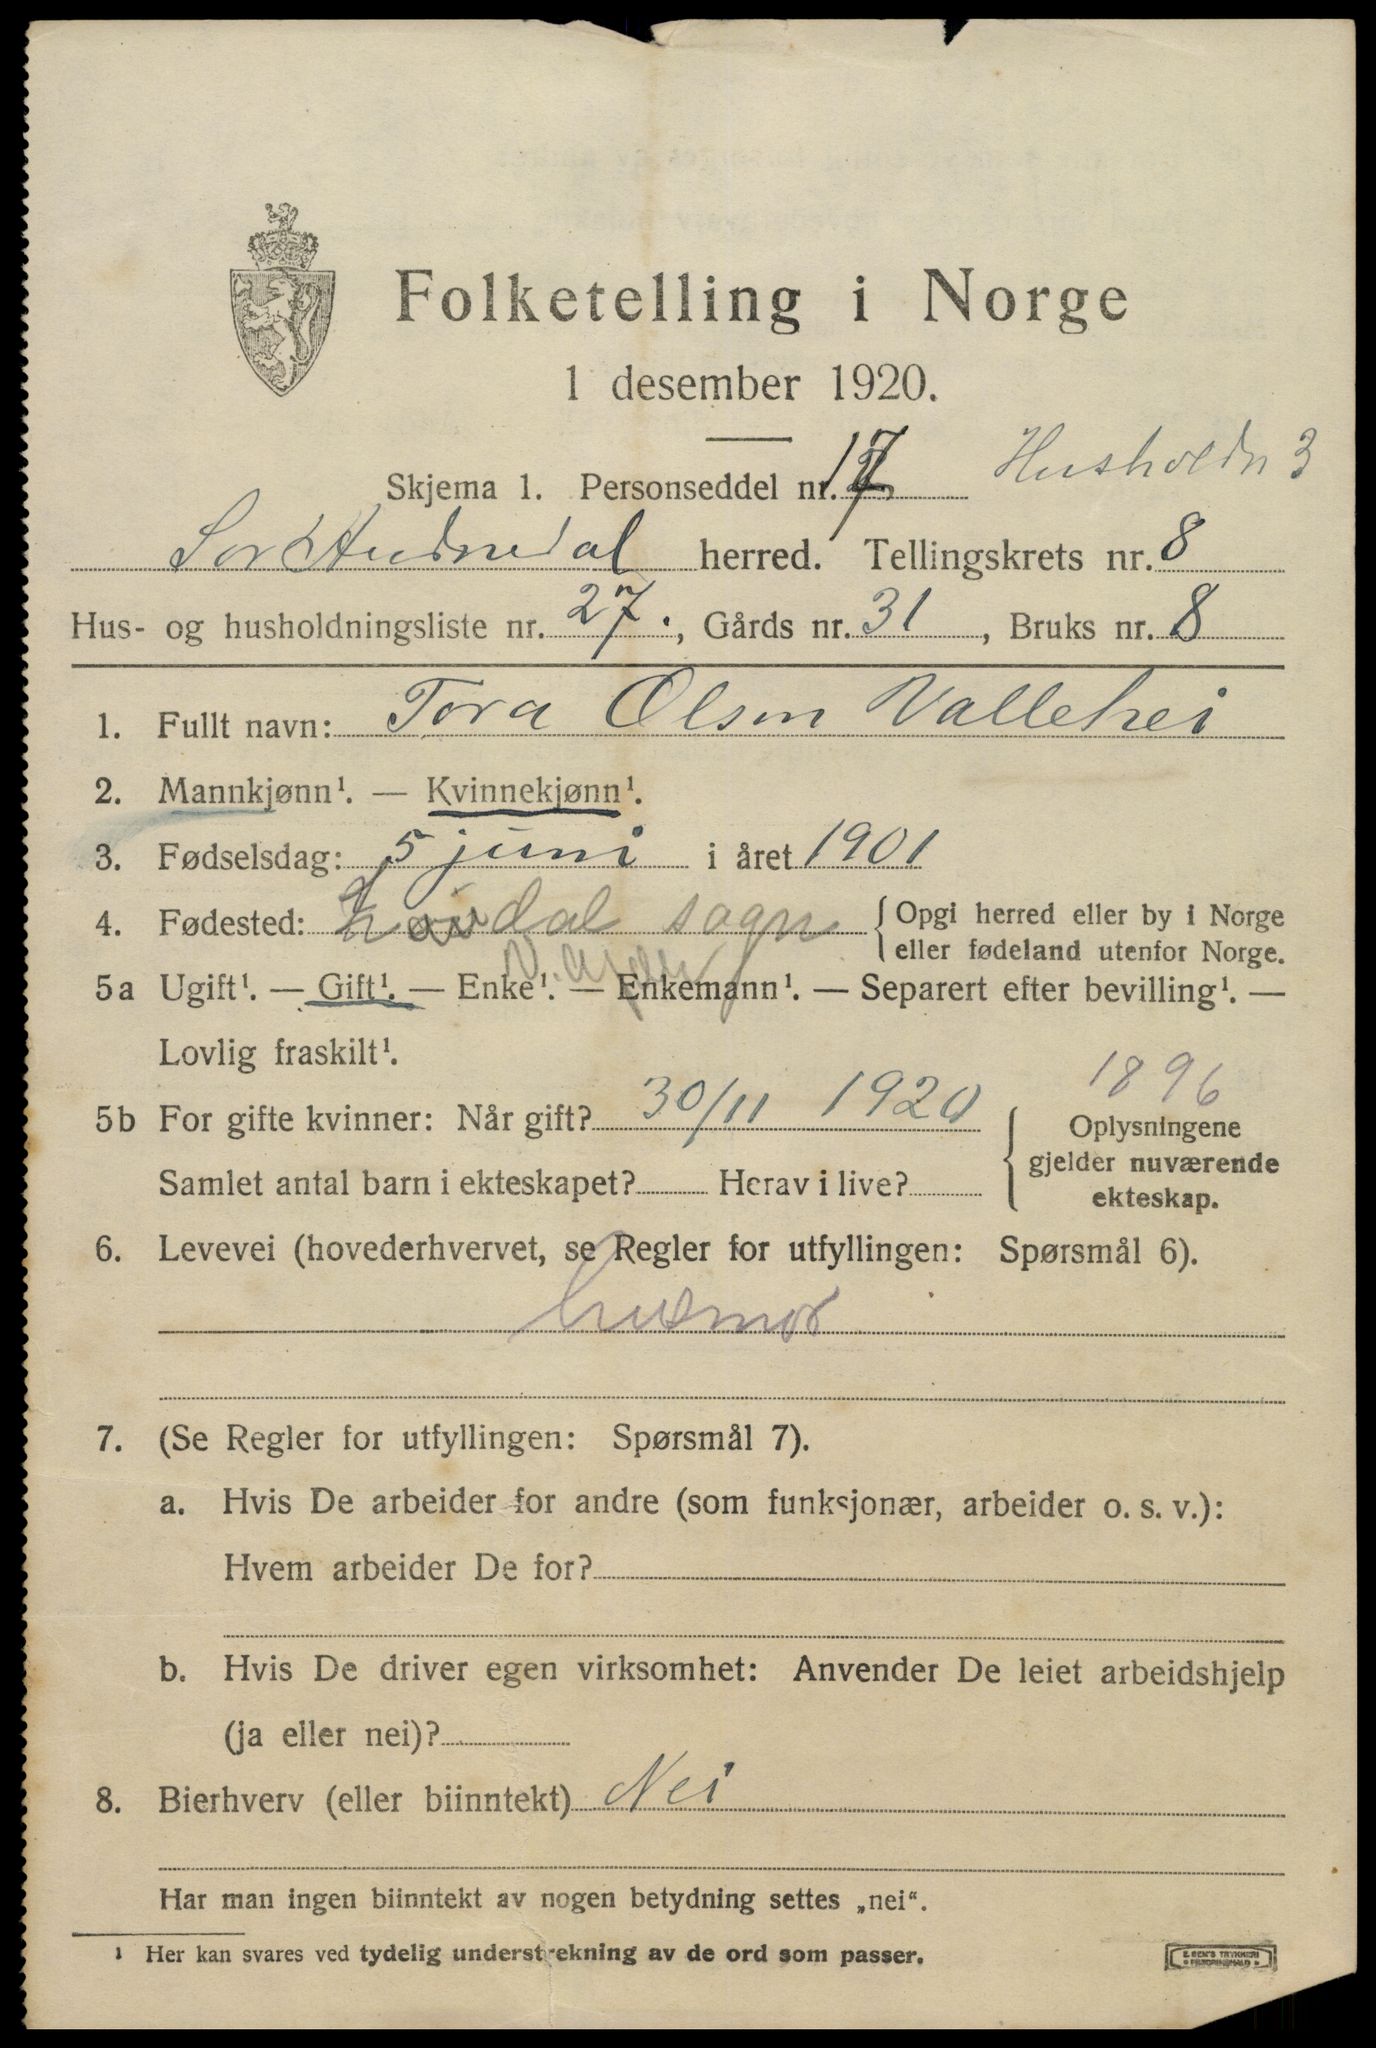 Folketelling i Norge
1 desember 1920.
Husholdn 3
Skjema 1. Personseddel nr. 17
Sør Audnedal herred. Tellingskrets nr. 8
Hus- og husholdningsliste nr. 27., Gårds nr. 31, Bruks nr. 8
1. Fullt navn: Tora Olsen Vallehei
2. Mannkjønn¹. — Kvinnekjønn¹.
3. Fødselsdag: 5 juni i året 1901
4. Fødested: sogn { Opgi herred eller by i Norge
eller fødeland utenfor Norge.
5a Ugift¹. — Gift¹. — Enke¹. — Enkemann¹. — Separert efter bevilling¹. —
Lovlig fraskilt¹.
1896
5b For gifte kvinner: Når gift? 30/11 1920 { Oplysningene
gjelder nuværende
ekteskap.
Samlet antal barn i ekteskapet? Herav i live?
6. Levevei (hovederhvervet, se Regler for utfyllingen: Spørsmål 6).
husmor
7. (Se Regler for utfyllingen: Spørsmål 7).
a. Hvis De arbeider for andre (som funksjonær, arbeider o. s. v.):
Hvem arbeider De for?
b. Hvis De driver egen virksomhet: Anvender De leiet arbeidshjelp
(ja eller nei)?
8. Bierhverv (eller biinntekt) Nei
Har man ingen biinntekt av nogen betydning settes „nei“.
¹ Her kan svares ved tydelig understrekning av de ord som passer.